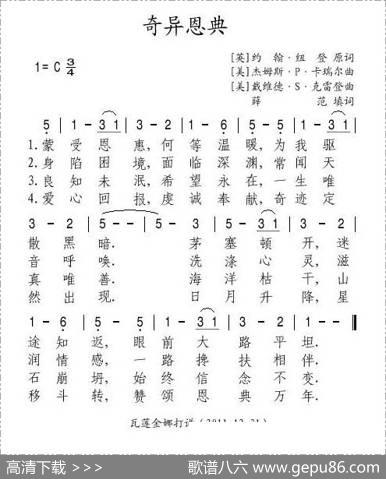 奇异恩典
[英]约 翰·纽 登 原词
1=C 3/4
[美]杰姆斯·P·卡瑞尔曲
[美]戴维德·S·克雷登曲
薛 范 填词
5 | 1 - 3 1 | 3 - 2 | 1 - 6 | 5 - 5 | 1 - 3 1 |
1.蒙 受 恩 惠,何 等 温 暖,为 我 驱
2.身 陷 困 境,面 临 深 渊,常 闻 天
3.良 知 未 泯,希 望 永 在,一 生 唯
4.爱 心 回 报,虔 诚 奉 献,奇 迹 定
3 - 2 | 5 - - | 5 - 5 | 5 - 3 1 | 3 - 2 |
散 黑 暗. 茅 塞 顿 开,迷
音 呼 唤. 洗 涤 心 灵,滋
真 唯 善. 海 洋 枯 干,山
然 出 现. 日 月 升 降,星
1 - 6 | 5 - 5 | 1 - 3 1 | 3 - 2 | 1 - - ‖
途 知 返,眼 前 大 路 平 坦.
润 情 感,一 路 搀 扶 相 伴.
石 崩 坍,始 终 信 念 不 变.
移 斗 转,赞 颂 恩 典 万 年.
瓦莲金娜打谱
高清下载 >>>
歌谱八六 www.gepu86.com